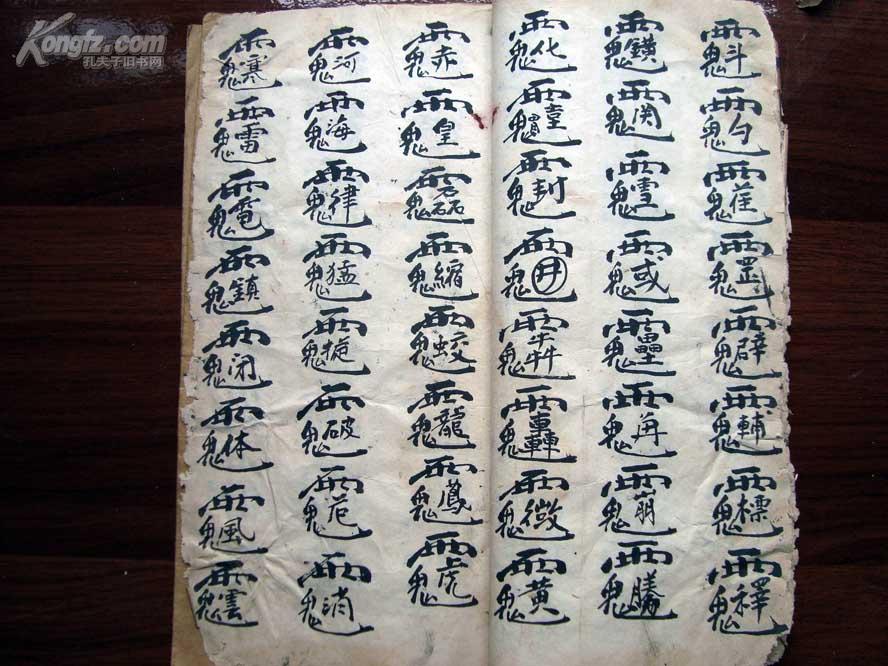 Kongfz.com
孔夫子旧书网
雨鬼斗 雨鬼勺 雨鬼罡 雨鬼辟 雨鬼輔 雨鬼標 雨鬼釋
雨鬼関 雨鬼雪 雨鬼或 雨鬼壘 雨鬼苒 雨鬼崩 雨鬼騰
雨鬼化 雨鬼封 雨鬼井 雨鬼犇 雨鬼轟 雨鬼微 雨鬼黄
雨鬼赤 雨鬼皇 雨鬼磊 雨鬼縮 雨鬼蛟 雨鬼龍 雨鬼鳳 雨鬼虎
雨鬼河 雨鬼海 雨鬼律 雨鬼猛 雨鬼破 雨鬼消
雨鬼寒 雨鬼雷 雨鬼電 雨鬼鎮 雨鬼闭 雨鬼体 雨鬼風 雨鬼雲